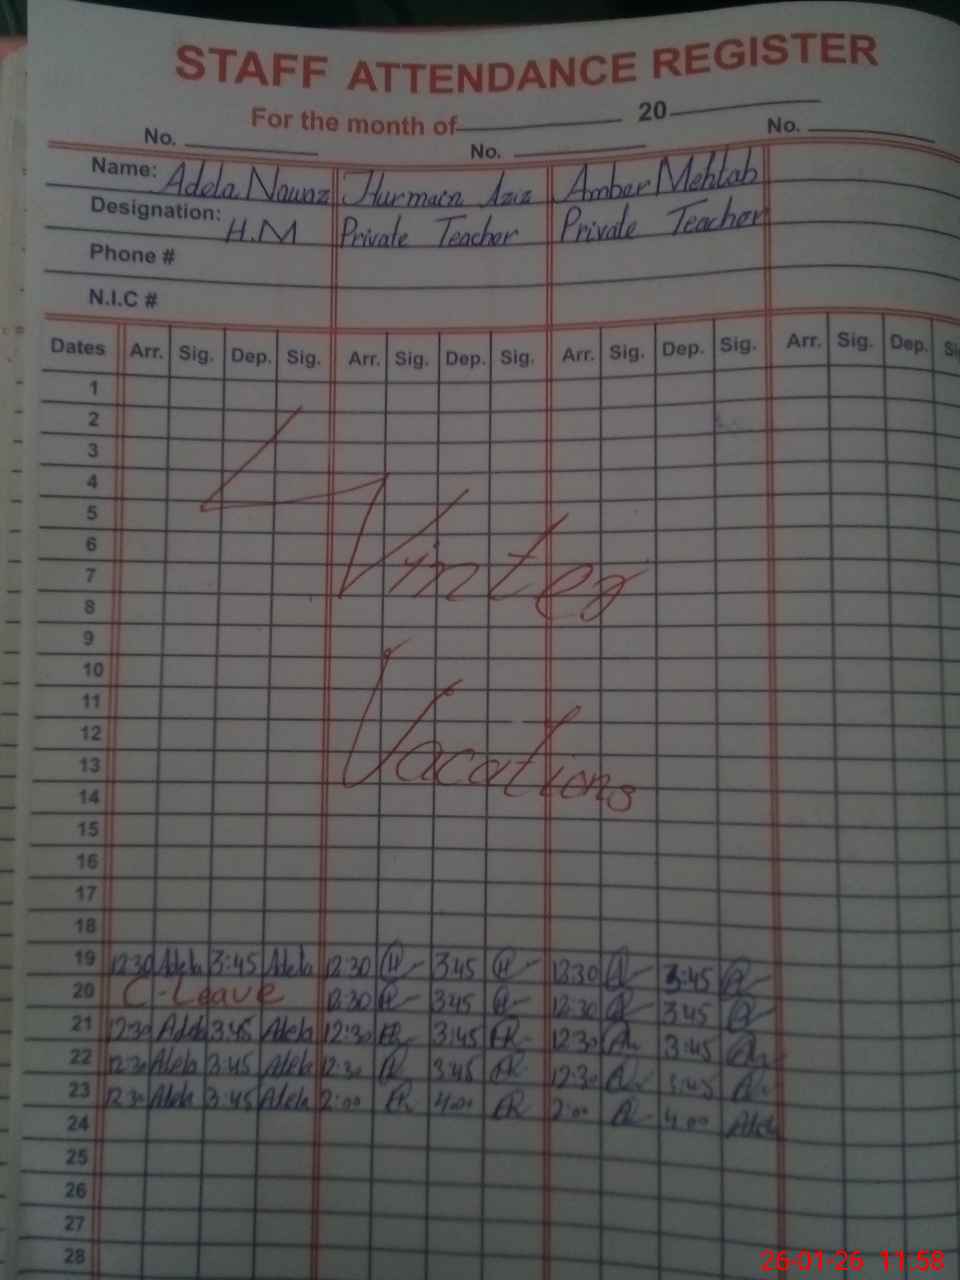 STAFF ATTENDANCE REGISTER
For the month of 20
No. No. No.
Name: Adela Nawaz Hurmain Aziz Amber Mehtab
Designation: H.M Private Teacher Private Teacher
Phone #
N.I.C #
Dates Arr. Sig. Dep. Sig. Arr. Sig. Dep. Sig. Arr. Sig. Dep. Sig. Arr. Sig. Dep. Si
1
2
3
4
5
6
7
8
Winter
9
10
11
12
13
14
Vacations
15
16
17
18
19 12:30 Adela 3:45 Adela 12:30 H 3:45 H 12:30 A 3:45 A
20 C-Leave 12:30 H 3:45 H 12:30 A 3:45 A
21 12:30 Adela 3:45 Adela 12:30 3:45 12:30 A 3:45 A
22 12:30 Adela 3:45 Adela 12:30 3:45 12:30 A 3:45 A
23 12:30 Adela 3:45 Adela 2:00 4:00 2:00 A 4:00
24
25
26
27
28
26-01-26 11:58